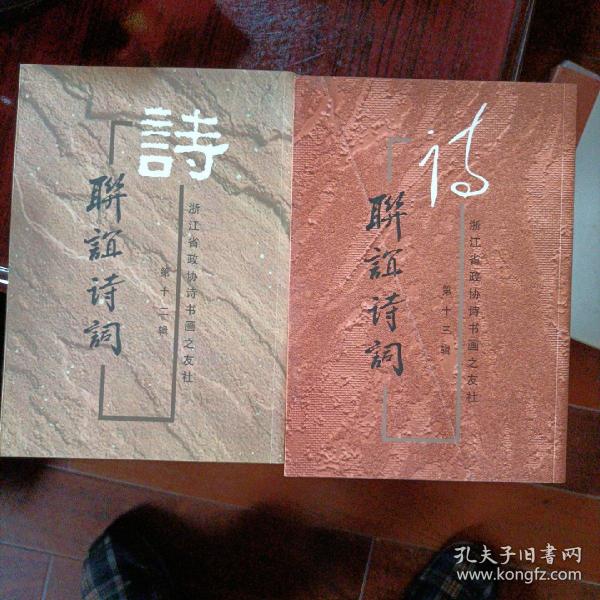 詩
聯誼诗詞
第十二辑
浙江省政协诗书画之友社
诗
聯誼诗詞
第十三辑
浙江省政协诗书画之友社
孔夫子旧书网
www.kongfz.com